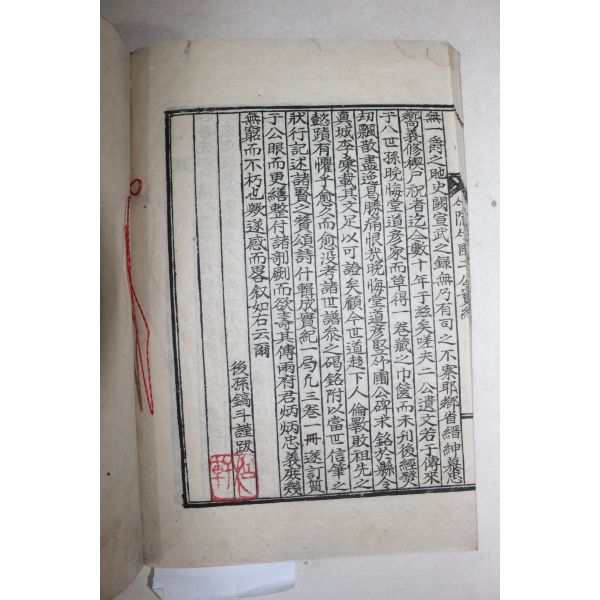 無一爵之貤史闕宣武之録無乃有司之不察耶鄕省縉紳慕悳
嚮義修禊尸祝者迄今數十年于玆矣嗟夫二公遺文若干傳來
于八世孫晩悔堂道彦家而草得一卷藏之巾篋而未刋後經癸
刼飄散盡逸曷勝痛恨於晩悔堂道彦取竹圃公碑求銘於縣令
眞城李彙載其文足以可證矣顧今世道趍下人倫斁敗祖先之
懿蹟有懼乎愈久而愈没考諸世譜叅之碣銘附以當世信筆之
狀行記述諸賢之贊頌詩什輯成實紀一局凡三卷一冊遂訂質
于公眼而更繕整付諸剞劂而欲壽其傳兩府君炳炳忠義庶幾
無窮而不朽也歟遂感而畧叙如右云爾
後孫鎬斗謹跋